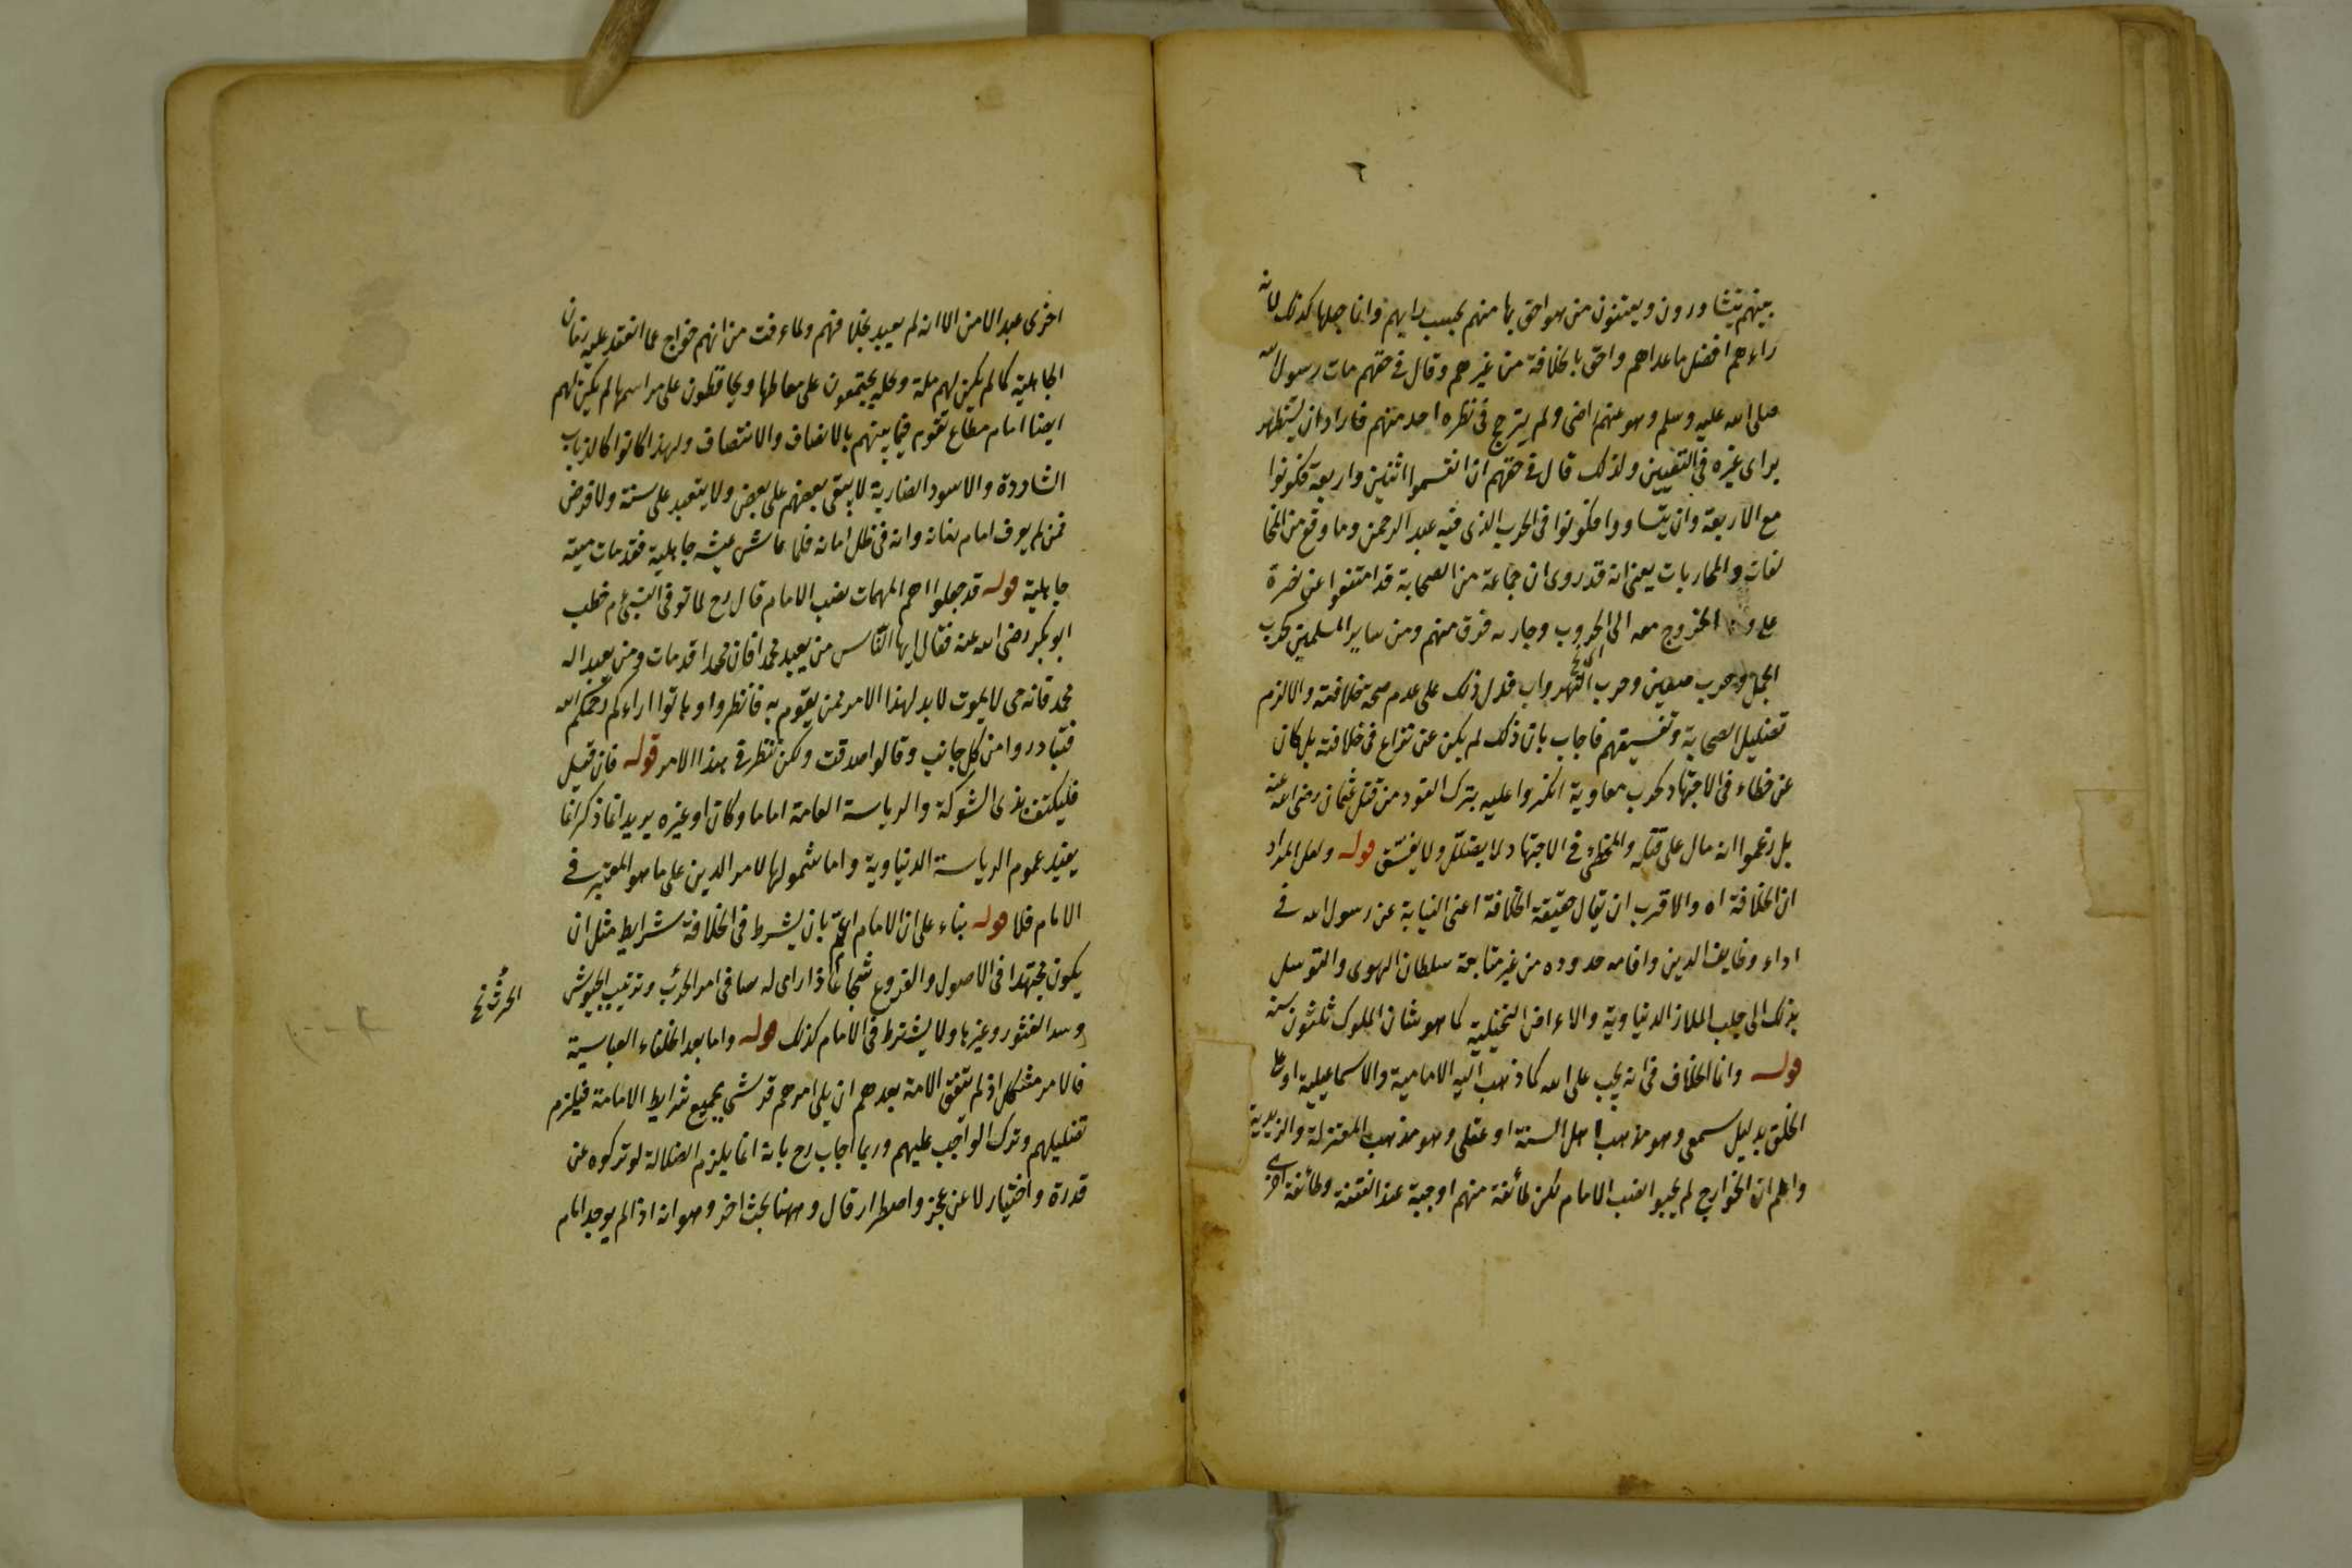 بينهم يتشاورون ويعينون من هو احق بها منهم بحسب رايهم وانما جعلها كذلك لانه
راءهم افضل ما عداهم واحق بالخلافة من غيرهم وقال في حقهم مات رسول الله
صلى الله عليه وسلم وهو عنهم راضى ولم يترجح في نظره احد منهم فاراد ان يستظهر
براى غيره في التعيين ولذلك قال في حقهم ان انقسموا اثنين واربعة فكونوا
مع الاربعة وان يتساووا فكونوا في الحزب الذى فيه عبد الرحمن وما وقع من المخا
لفات والمحاربات يعنى انه قد روى ان جماعة من الصحابة قد امتنعوا عن نصرة
على و الخروج معه الى الحروب وحاربه فرق منهم ومن ساير المسلمين كحرب
الجمل وحرب صفين وحرب النهروان فدل ذلك على عدم صحة خلافته والا لزم
تضليل الصحابة وتفسيقهم فاجاب بان ذلك لم يكن عن نزاع في خلافته بل كان
عن خطاء في الاجتهاد كحرب معاوية انكروا عليه بترك القود من قتل عثمان رضى الله عنه
بل زعموا انه مال على قتله والمخطى في الاجتهاد لا يضلل ولا يفسق قوله ولعل المراد
ان الخلافة اه والاقرب ان يقال حقيقة الخلافة اعنى النيابة عن رسول الله في
اداء وظايف الدين واقامه حدوده من غير متابعة سلطان الهوى والتوسل
بذلك الى جلب الملاز الدنياوية والاعراض التخيلية كما هو شان الملوك ثلثون سنة
قوله وانما الخلاف في انه يجب على الله كما ذهب اليه الامامية والاسماعيلية او على
الخلق بدليل سمعى وهو مذهب اهل السنة او عقلى وهو مذهب المعتزلة والزيدية
واعلم ان الخوارج لم يجبوا نصب الامام لكن طائفة منهم اوجبة عند الفتنة وطائفة اخرى
اخرى عند الامن الا انه لم يعبد بخلافهم ولما عرفت من انهم خوارج عما انعقد عليه زمان
الجاهلية كما لم يكن لهم ملة ونحلة يجتمعون على معاطها ويحافظون على مراسمها لم يكن لهم
ايضا امام مطاع تقوم فيما بينهم بالانصاف والانتصاف ولهذا كانوا كالذياب
الشاردة والاسود الضارية لا يبقى بعضهم على بعض ولا يتعبد على سنة ولا فرض
فمن لم يعرف امام زمانه وانه في ظل امانه فلما عاش عيشه جاهلية فقد مات ميتة
جاهلية قوله قد جعلوا اهم المهمات نصب الامام قال رح لما توفى النبى ءم خطب
ابو بكر رضى الله عنه فقال ايها الناس من يعبد محمدا فان محمدا قد مات ومن يعبد اله
محمد فانه حى لا يموت لا بد لهذا الامر ممن يقوم به فانظروا وهاتوا اراءكم رحمكم الله
فتبادروا من كل جانب وقالوا صدقت ولكن ننظر في هذا الامر قوله فان قيل
فليكتف بذى الشوكة والرياسة العامة اماما وكان او غيره يريد انما ذكر انما
يفيد عموم الرياسة الدنياوية واما شمولها لامر الدين على ما هو المعتبر في
الامام فلا قوله بناء على ان الامام اعم بان يشرط في الخلافة شرايط مثل ان
يكون مجتهدا في الاصول والفروع شجاعا ذا راى له صا في امر الحرب وترتيب الجيوش
الحرث نخ
وسد الثغور وغيرها ولا يشترط في الامام كذلك قوله واما بعد الخلفاء العباسية
فالامر مشكل اذ لم يتفق الامة بعدهم ان يلى امرهم قرشى بجميع شرايط الامامة فيلزم
تضليلهم وترك الواجب عليهم وربما اجاب رح بانه انما يلزم الضلالة لو تركوه عن
قدرة واختيار لا عن عجز واضطرار قال وههنا بحث اخر وهو انه اذا لم يوجد امام